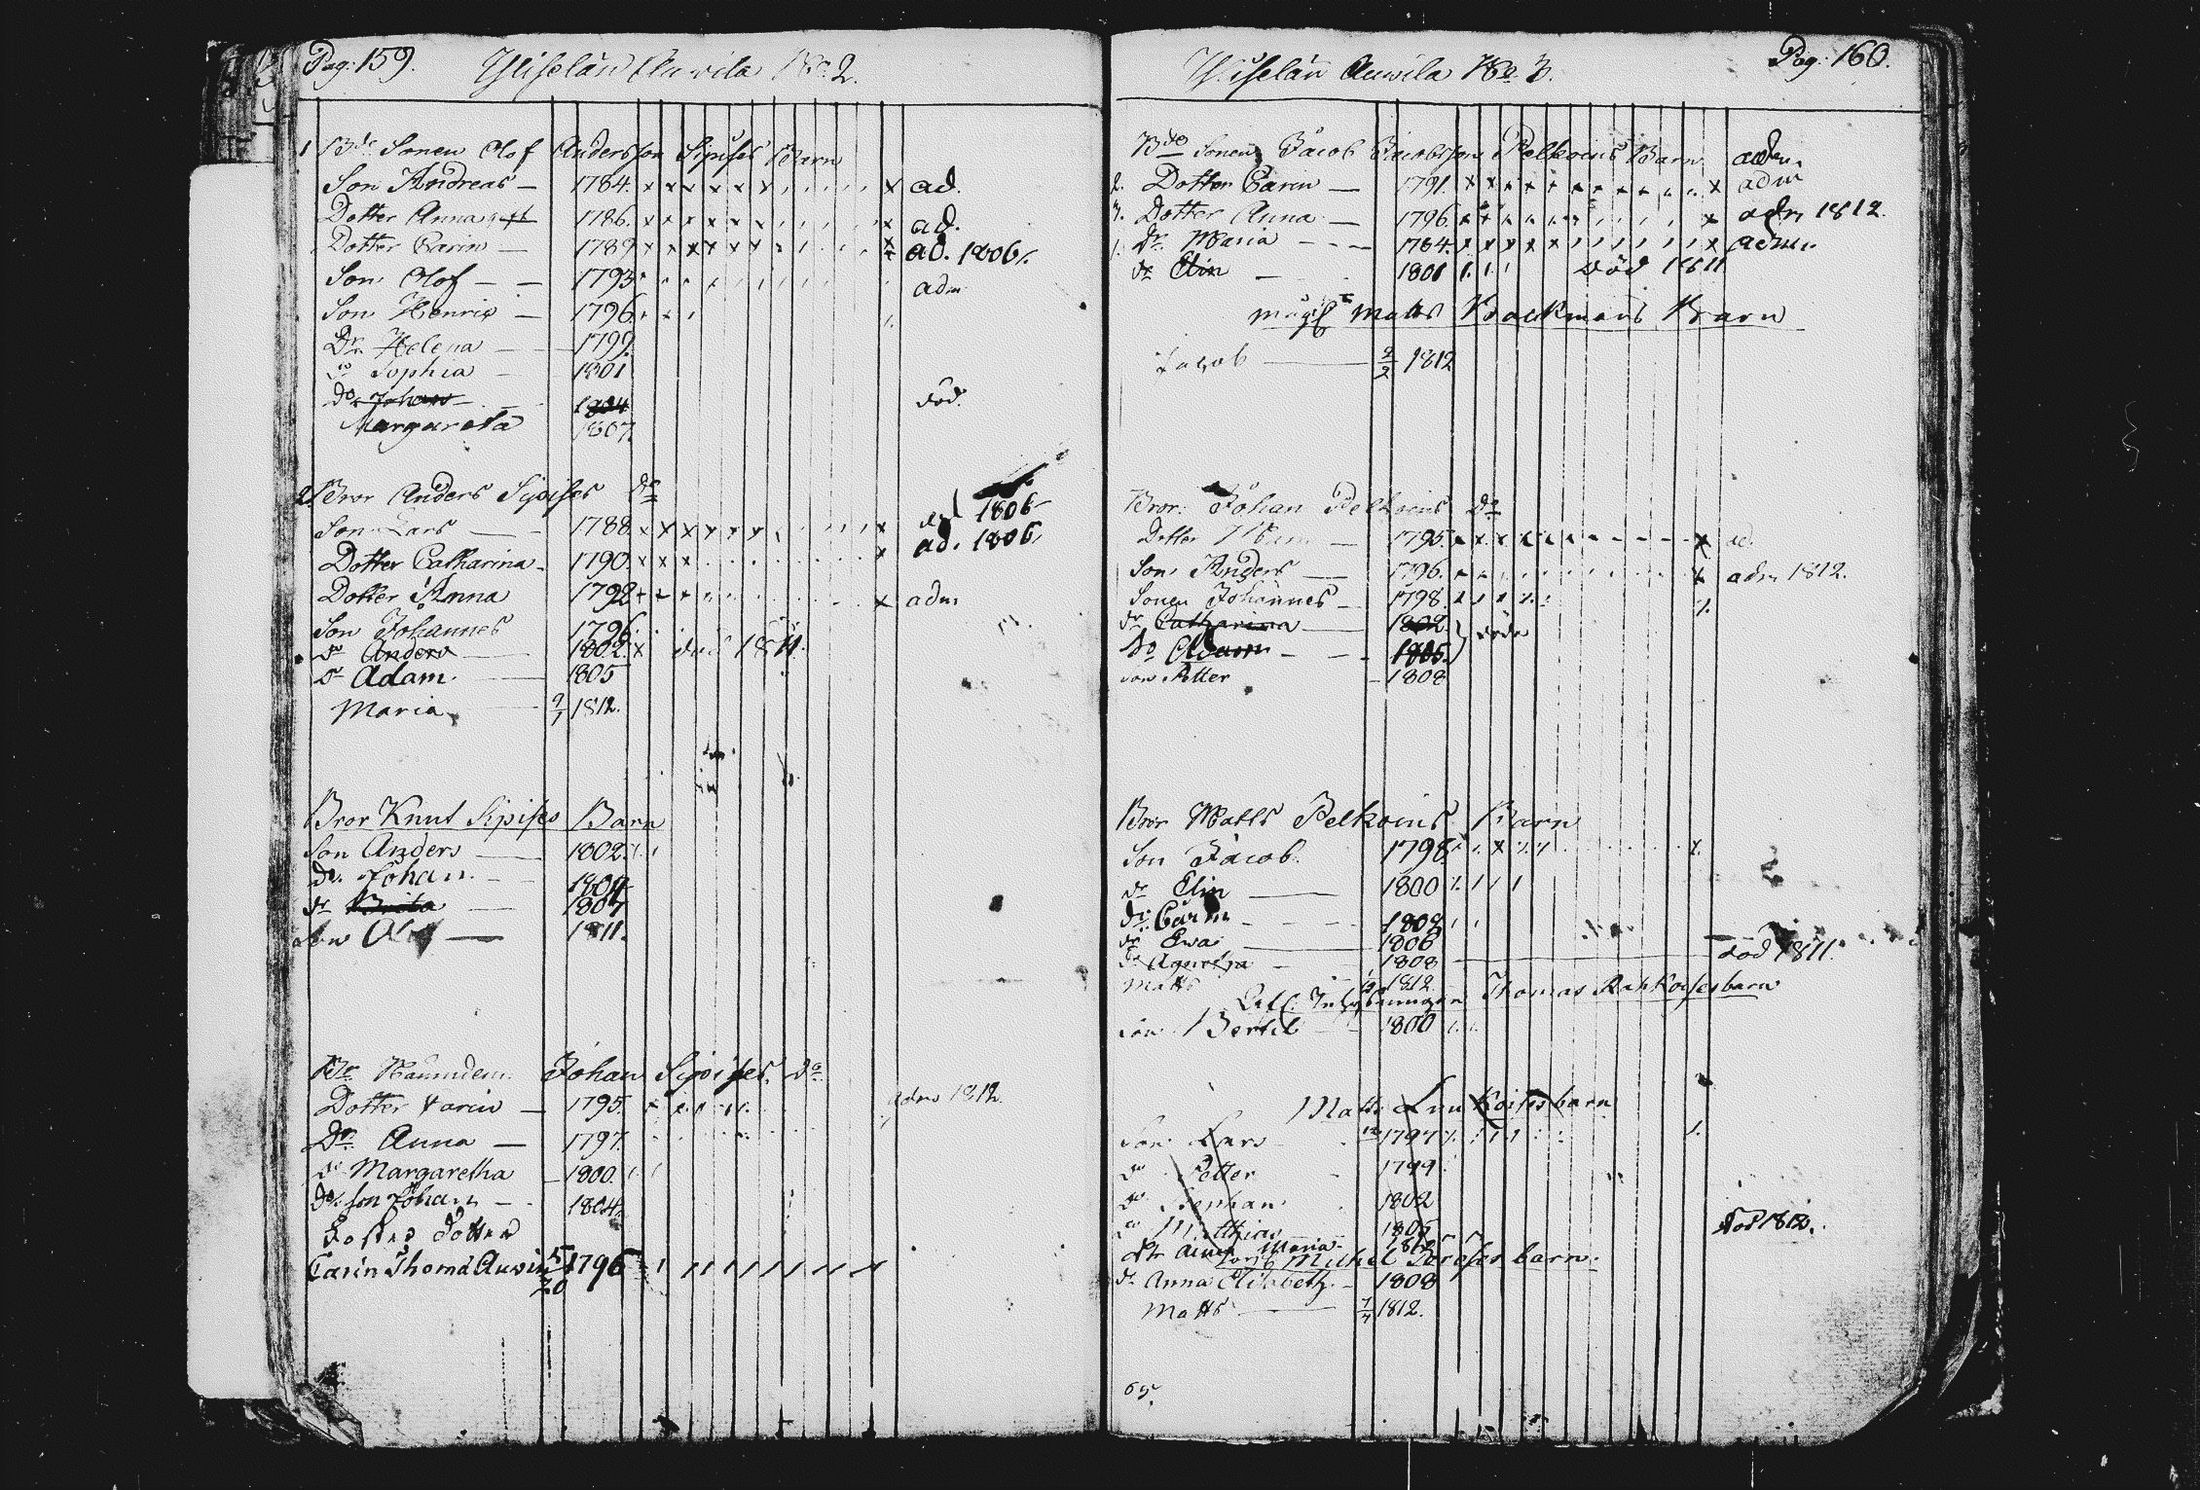 Pag: 159. Yliselän Auvila No 2.
1 Bde Sonen Olof Andersson Sipises Barn
Son Andreas — 1784. x x x x x x x ad.
Dotter Anna 1786. x x x x x x x ad.
Dotter Carin — 1789 x x x x x x x ad. 1806.
Son Olof — — 1793 adm
Son Henric — 1796
Dr Helena — 1799
do Sophia — 1801
do Johan 1804 död.
Margareta 1807
2 Bror Anders Sipises do
Son Lars — 1788 x x x x x x x ad 1806
Dotter Catharina — 1790 x x x x ad. 1806.
Dotter Anna 1792 x x x x adm
Son Johannes 1796
do Anders 1802. x död 1811.
do Adam. 1805
Maria 9/1 1812.
Bror Knut Sipises Barn
Son Anders — 1802
do. Johan — 1804
do Brita — 1807
son 1811.
Johan Sipises. do
Dotter Carin — 1795. adm 1812.
Dr. Anna — 1797.
do Margaretha — 1800.
do. son Johan — 1804.
Foster Dotter
Carin Thoms Auvin 5/20 1796
Yliselän Auvila No 3. Pag: 160.
Bde Sonen Jacob Jacobsson Pelkoins Barn adm.
2. Dotter Carin — 1791. adm
3. Dotter Anna — 1796 adm 1812.
1. Dr. Maria — 1784. adm.
dr Elin — 1801 död 1811
Matts Krackmans Barn
Jacob 2/2 1812
Bror: Johan Pelkoins do
Dotter 1795. ad.
Son Anders — 1796. adm 1812.
Sonen Johannes — 1798.
dr Catharina 1802 } döda
do Adam — 1805
son Petter — 1808
Bror Matts Pelkoins Barn
Son Jacob 1798
dr Elin 1800
dr. Carin 1802
dr Ewa 1806
dr Agnetha 1808 död 1811.
Matts 1812
Thomas Rahkoises barn
son Bertil 1800
Matts barn
Son Lars 1797
do Petter 1799
do Stephan 1802
do Matthias 1805 död 1812.
Maria
Michel barn.
dr Anna Elisabeth — 1808
Matts 7/4 1812.
65.